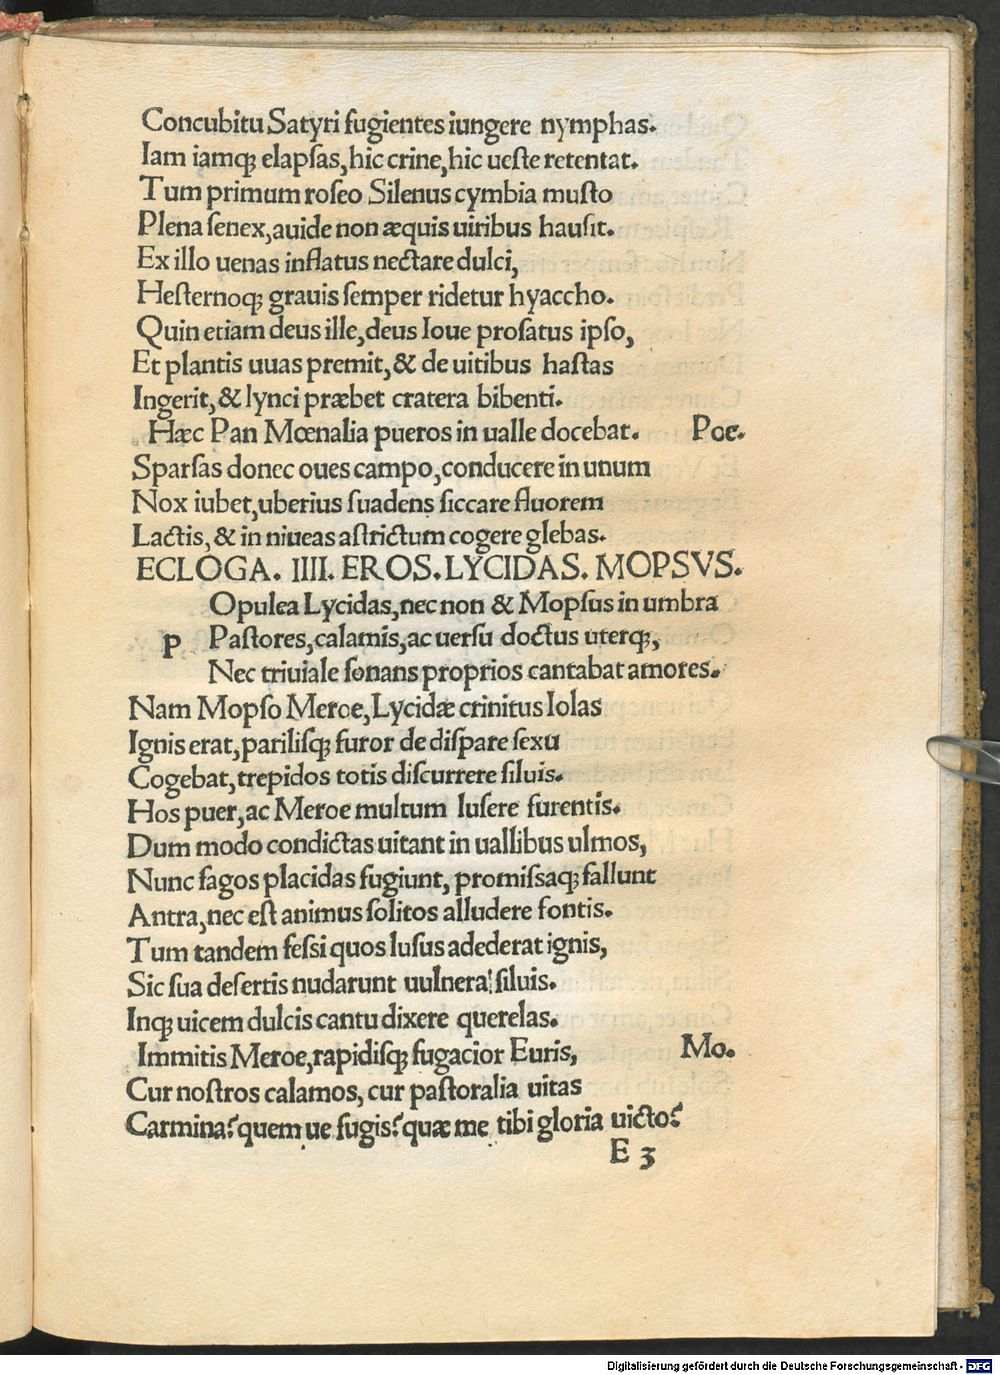 Concubitu Satyri fugientes iungere nymphas.
Iam iamqꝫ elapsas, hic crine, hic ueste retentat.
Tum primum roseo Silenus cymbia musto
Plena senex, auide non æquis uiribus hausit.
Ex illo uenas inflatus nectare dulci,
Hesternoqꝫ grauis semper ridetur hyaccho.
Quin etiam deus ille, deus Ioue prosatus ipso,
Et plantis uuas premit, & de uitibus hastas
Ingerit, & lynci præbet cratera bibenti.
Hæc Pan Mœnalia pueros in ualle docebat. Poe.
Sparsas donec oues campo, conducere in unum
Nox iubet, uberius suadens siccare fluorem
Lactis, & in niueas astrictum cogere glebas.
ECLOGA. IIII. EROS. LYCIDAS. MOPSVS.
Opulea Lycidas, nec non & Mopsus in umbra
p Pastores, calamis, ac uersu doctus uterqꝫ,
Nec triuiale sonans proprios cantabat amores.
Nam Mopso Meroe, Lycidæ crinitus Iolas
Ignis erat, parilisqꝫ furor de dispare sexu
Cogebat, trepidos totis discurrere siluis.
Hos puer, ac Meroe multum lusere furentis.
Dum modo condictas uitant in uallibus ulmos,
Nunc fagos placidas fugiunt, promissaqꝫ fallunt
Antra, nec est animus solitos alludere fontis.
Tum tandem fessi quos lusus adederat ignis,
Sic sua desertis nudarunt uulnera siluis.
Inqꝫ uicem dulcis cantu dixere querelas.
Immitis Meroe, rapidisqꝫ fugacior Euris, Mo.
Cur nostros calamos, cur pastoralia uitas
Carmina? quem ue fugis? quæ me tibi gloria uicto?
E 3
Digitalisierung gefördert durch die Deutsche Forschungsgemeinschaft - DFG